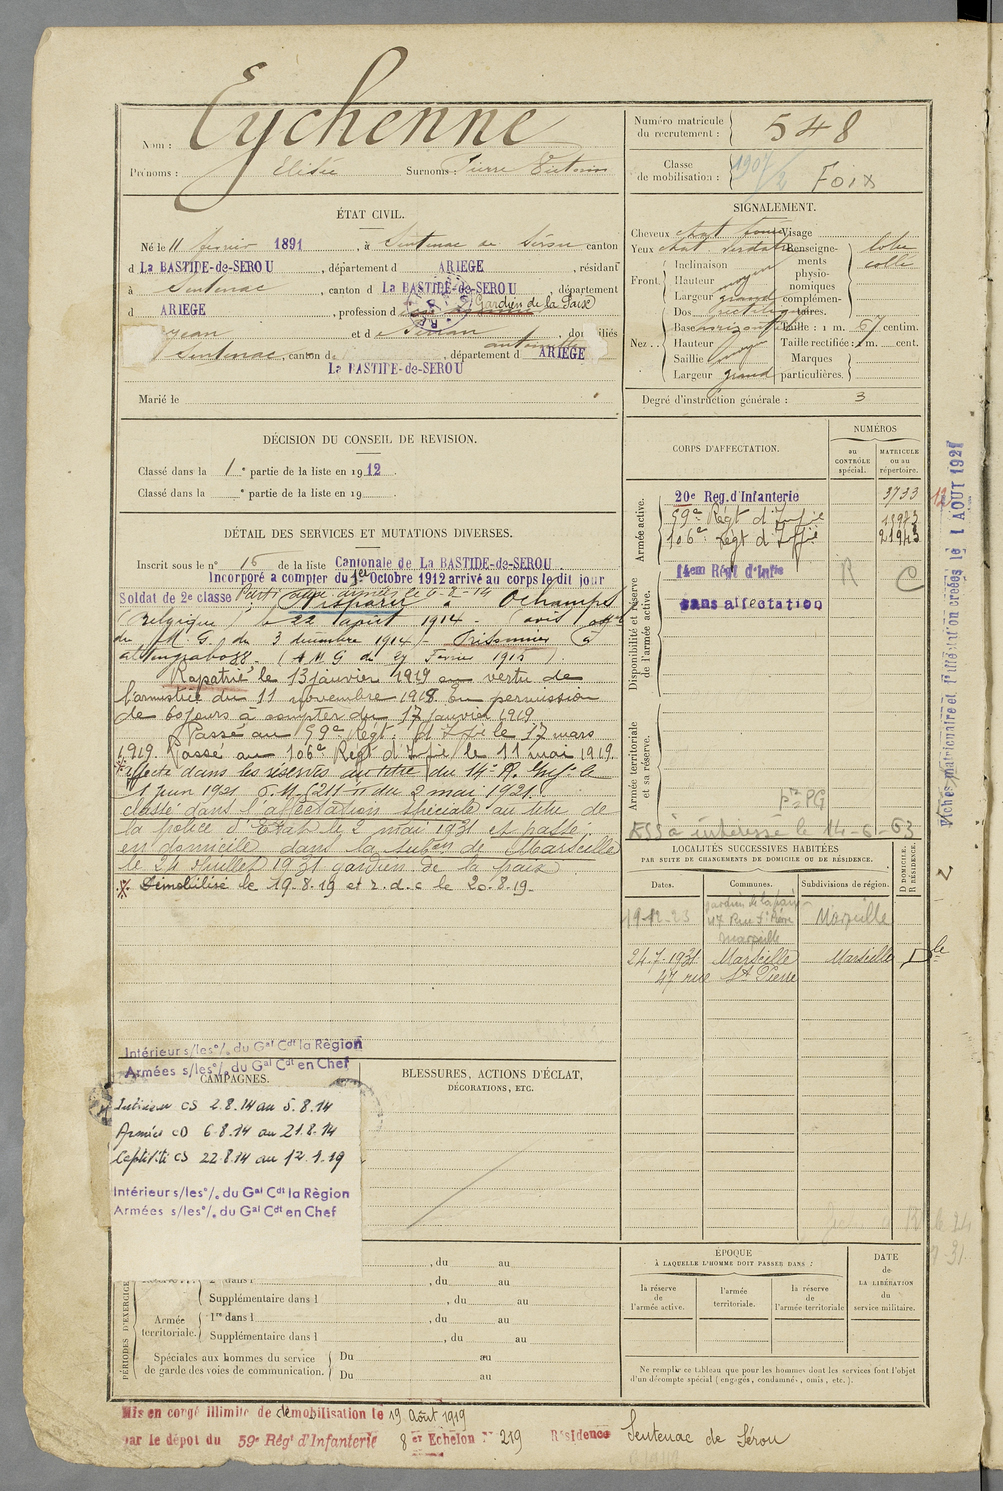 Nom : Eychenne
Prénoms : Elisée Surnoms : Pierre Victorin
Numéro matricule du recrutement : 548
Classe de mobilisation : 1907/2 Foix
ÉTAT CIVIL.
Né le 11 février 1891, à Sentenac de Sérou canton
d La BASTIDE-de-SEROU, département d ARIEGE, résidant
à Sentenac, canton d La BASTIDE-de-SEROU, département
d ARIEGE, profession d Gardien de la Paix
Jean et d e Serran antoinette, domiciliés
Sentenac, canton de, département d ARIEGE
La BASTIDE-de-SEROU
Marié le
SIGNALEMENT.
Cheveux chat foncé Visage
Yeux chat verdatre Renseigne-
ments
physio-
nomiques
complémen-
taires.
lobe
collé
Front
Inclinaison
Hauteur moyen
Largeur grand
Nez
Dos rectiligne
Base horizontale
Hauteur moy
Saillie
Largeur grand
Taille : 1 m. 67 centim.
Taille rectifiée : 1 m. cent.
Marques
particulières.
Degré d'instruction générale : 3
DÉCISION DU CONSEIL DE REVISION.
Classé dans la 1re partie de la liste en 1912.
Classé dans la e partie de la liste en 19
CORPS D'AFFECTATION.
NUMÉROS
au
CONTRÔLE
spécial.
MATRICULE
ou au
répertoire.
Armée active.
20e Reg.d'Infanterie 3733 12
59e Régt d'Infie 15973
106e Régt d'Infie 21943
Disponibilité et réserve
de l'armée active.
14em Régt d'Infie R C
sans affectation
Armée territoriale
et sa réserve.
PG
ESS à intéressé le 14-6-63
DÉTAIL DES SERVICES ET MUTATIONS DIVERSES.
Inscrit sous le n° 16 de la liste Cantonale de La BASTIDE-de-SEROU
Incorporé a compter du 1er Octobre 1912 arrivé au corps le dit jour
Soldat de 2e classe Parti aux armées le 6-8-14
Disparu à Ochamps
(Belgique) le 22 août 1914 - avis offel
du M. G. du 3 décembre 1914 - Prisonnier à
altengrabow. (A.M.G du 27 Février 1915).
Rapatrié le 13 janvier 1919 en vertu de
l'armistice du 11 novembre 1918. En permission
de 60 jours à compter du 17 janvier 1919
Passé au 59e Régt. d'Infie le 17 mars
1919. Passé au 106e Régt d'Infie le 11 mai 1919.
affecté dans les réserves au titre du 14e R. Inf. le
1 juin 1921 du 2 mai 1921.
classé dans l'affectation spéciale au titre de
la police d'Etat le 2 mai 1931 et passé
en domicile dans la Subon de Marseille
le 24 Juillet 1931 gardien de la paix
Démobilisé le 19.8.19 et r.d.c le 20.8.19-
LOCALITÉS SUCCESSIVES HABITÉES
PAR SUITE DE CHANGEMENTS DE DOMICILE OU DE RÉSIDENCE.
Dates. Communes. Subdivisions de région. D DOMICILE. R RÉSIDENCE.
19-12-23 gardien de la paix 47 Rue St Pierre Marseille Marseille
24-7-1931 Marseille Marseille Dle
47 rue St Pierre
Fiches matriculaire et d'affectation créées le 1 AOUT 1927
2
Intérieur s/les°/. du Gal Cdt la Région
Armées s/les°/. du Gal Cdt en Chef
CAMPAGNES.
Intérieur CS 2.8.14 au 5.8.14
Armées CD 6.8.14 au 21.8.14
Captivité CS 22.8.14 au 12.1.19
Intérieur s/les°/. du Gal Cdt la Région
Armées s/les°/. du Gal Cdt en Chef
BLESSURES, ACTIONS D'ÉCLAT,
DÉCORATIONS, ETC.
PÉRIODES D'EXERCICE
, du au
2e dans l , du au
Supplémentaire dans l , du au
Armée
territoriale.
1re dans l , du au
Supplémentaire dans l , du au
Spéciales aux hommes du service
de garde des voies de communication.
Du au
Du au
ÉPOQUE
À LAQUELLE L'HOMME DOIT PASSER DANS :
la réserve
de
l'armée active.
l'armée
territoriale.
la réserve
de
l'armée territoriale
DATE
de
LA LIBÉRATION
du
service militaire.
Ne remplir ce tableau que pour les hommes dont les services font l'objet
d'un décompte spécial (engagés, condamnés, omis, etc.).
Mis en congé illimité de démobilisation le 19 Août 1919
par le dépot du 59e Régt d'Infanterie 8er Echelon N° 219 Résidence Sentenac de Sérou